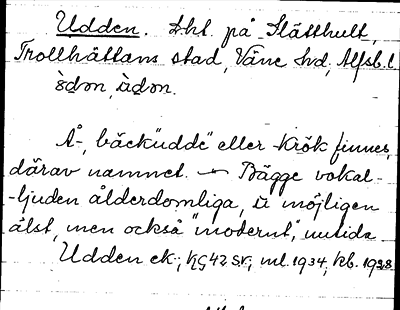 Udden. Dhl. på Slätthult,
Trollhättans stad, Väne hd, Älfsb. l.
ùdən, ùdən.
Å-, bäck"udde" eller krök finnes,
därav namnet. — Bägge vokal-
-ljuden ålderdomliga, möjligen
älst, men också "modernt",
Udden ek., KG42SK, ml. 1934, kb. 1938